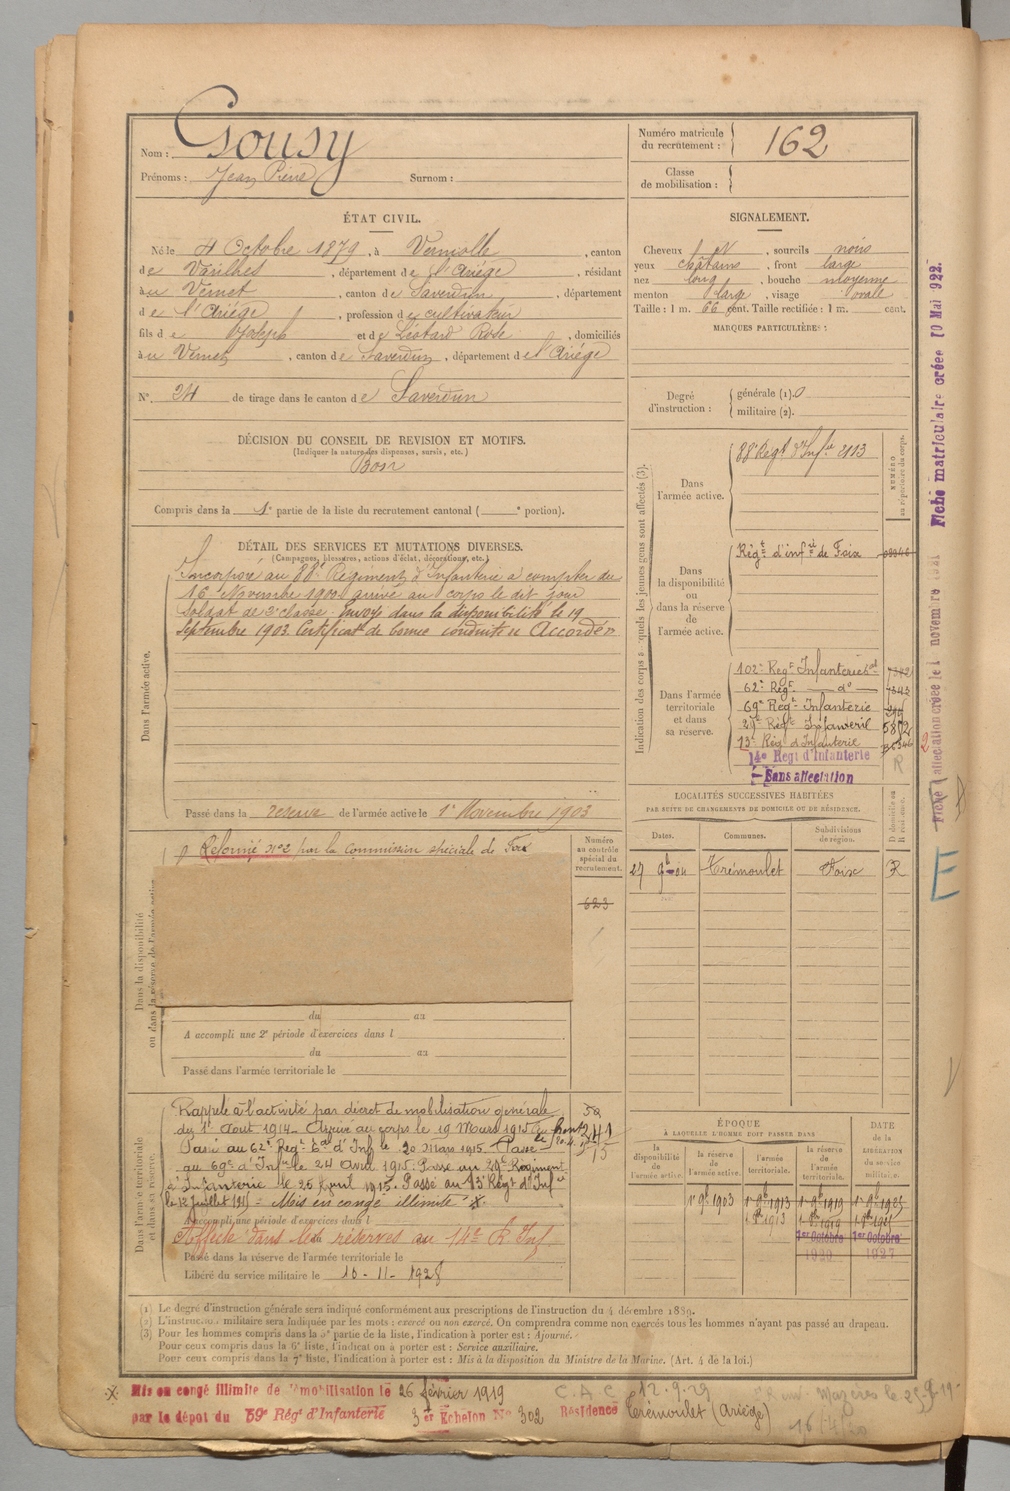 Nom : Gousy
Prénoms : Jean Pierre Surnom :
Numéro matricule du recrutement : 162
Classe de mobilisation :
ÉTAT CIVIL.
Né le 4 Octobre 1879, à Verniolle, canton
de Varilhes, département de l'Ariège, résidant
à au Vernet, canton de Saverdun, département
de l'Ariège, profession de cultivateur
fils de Joseph et de Léotard Rose, domiciliés
à au Vernet, canton de Saverdun, département de l'Ariège
N° 24 de tirage dans le canton de Saverdun
SIGNALEMENT.
Cheveux et, sourcils noirs
yeux châtains, front large
nez long, bouche moyenne
menton large, visage ovale
Taille : 1 m. 66 cent. Taille rectifiée : 1 m. cent.
MARQUES PARTICULIÈRES :
Degré d'instruction : générale (1). 0
militaire (2).
DÉCISION DU CONSEIL DE REVISION ET MOTIFS.
(Indiquer la nature des dispenses, sursis, etc.)
Bon
Compris dans la 1e partie de la liste du recrutement cantonal ( e portion).
DÉTAIL DES SERVICES ET MUTATIONS DIVERSES.
(Campagnes, blessures, actions d'éclat, décorations, etc.)
Dans l'armée active.
Incorporé au 88e Régiment d'Infanterie à compter du
16 Novembre 1900 arrivé au corps le dit jour
Soldat de 2e classe. Envoyé dans la disponibilité le 19
Septembre 1903. Certificat de bonne conduite Accordé
Passé dans la réserve de l'armée active le 1er Novembre 1903
Indication des corps auxquels les jeunes gens sont affectés (3).
NUMÉRO au répertoire du corps.
Dans l'armée active.
88e Régt d'Infie 2113
Dans la disponibilité ou dans la réserve de l'armée active.
Régt d'infie de Foix
Dans l'armée territoriale et dans sa réserve.
102e Régt Infanterie tal
62e Régt — do —
69e Régt Infanterie
29e Régt Infanterie
13e Régt d'Infanterie
14e Régt d'Infanterie
Sans affectation
LOCALITÉS SUCCESSIVES HABITÉES
PAR SUITE DE CHANGEMENTS DE DOMICILE OU DE RÉSIDENCE.
Dates. Communes. Subdivisions de région. D domicile ou R résidence.
27 9b 04 Trémoulet Foix R
Dans la disponibilité ou dans la réserve de l'armée active
Réformé no 2 par la Commission spéciale de Foix
Numéro au contrôle spécial du recrutement.
623
du au
A accompli une 2e période d'exercices dans l
du au
Passé dans l'armée territoriale le
Dans l'armée territoriale et dans sa réserve.
Rappelé à l'activité par décret de mobilisation générale
du 1er Août 1914. Arrivé au corps le 19 Mars 1915
Passé au 62e Régt tal d'Inf le 20 Mars 1915. Passé
au 69e d'Inf le 24 Avril 1915. Passé au 29e Régiment
d'Infanterie le 25 Avril 1915. Passé au 13e Régt d'Infie
le 12 Juillet 1915 = Mis en congé illimité X.
A accompli une période d'exercices dans l
Affecté dans les réserves au 14e R Inf
Passé dans la réserve de l'armée territoriale le
Libéré du service militaire le 10-11-1928
ÉPOQUE
À LAQUELLE L'HOMME DOIT PASSER DANS
la disponibilité de l'armée active. la réserve de l'armée active. l'armée territoriale. la réserve de l'armée territoriale. DATE de la LIBÉRATION du service militaire.
1er 9b 1903 1er 9b 1913 1er 9b 1919 1er 9b 1925
1er Octobre 1er Octobre
1920 1927
(1) Le degré d'instruction générale sera indiqué conformément aux prescriptions de l'instruction du 4 décembre 1889.
(2) L'instruction militaire sera indiquée par les mots : exercé ou non exercé. On comprendra comme non exercés tous les hommes n'ayant pas passé au drapeau.
(3) Pour les hommes compris dans la 5e partie de la liste, l'indication à porter est : Ajourné.
Pour ceux compris dans la 6e liste, l'indication à porter est : Service auxiliaire.
Pour ceux compris dans la 7e liste, l'indication à porter est : Mis à la disposition du Ministre de la Marine. (Art. 4 de la loi.)
X Mis en congé illimité de démobilisation le 26 février 1919
par le dépôt du 59e Régt d'Infanterie 3er Echelon No 302 Résidence Trémoulet (Ariège)
C.A.C 12.9.29
16/4/20
Fiche matriculaire créée 10 Mai 922.